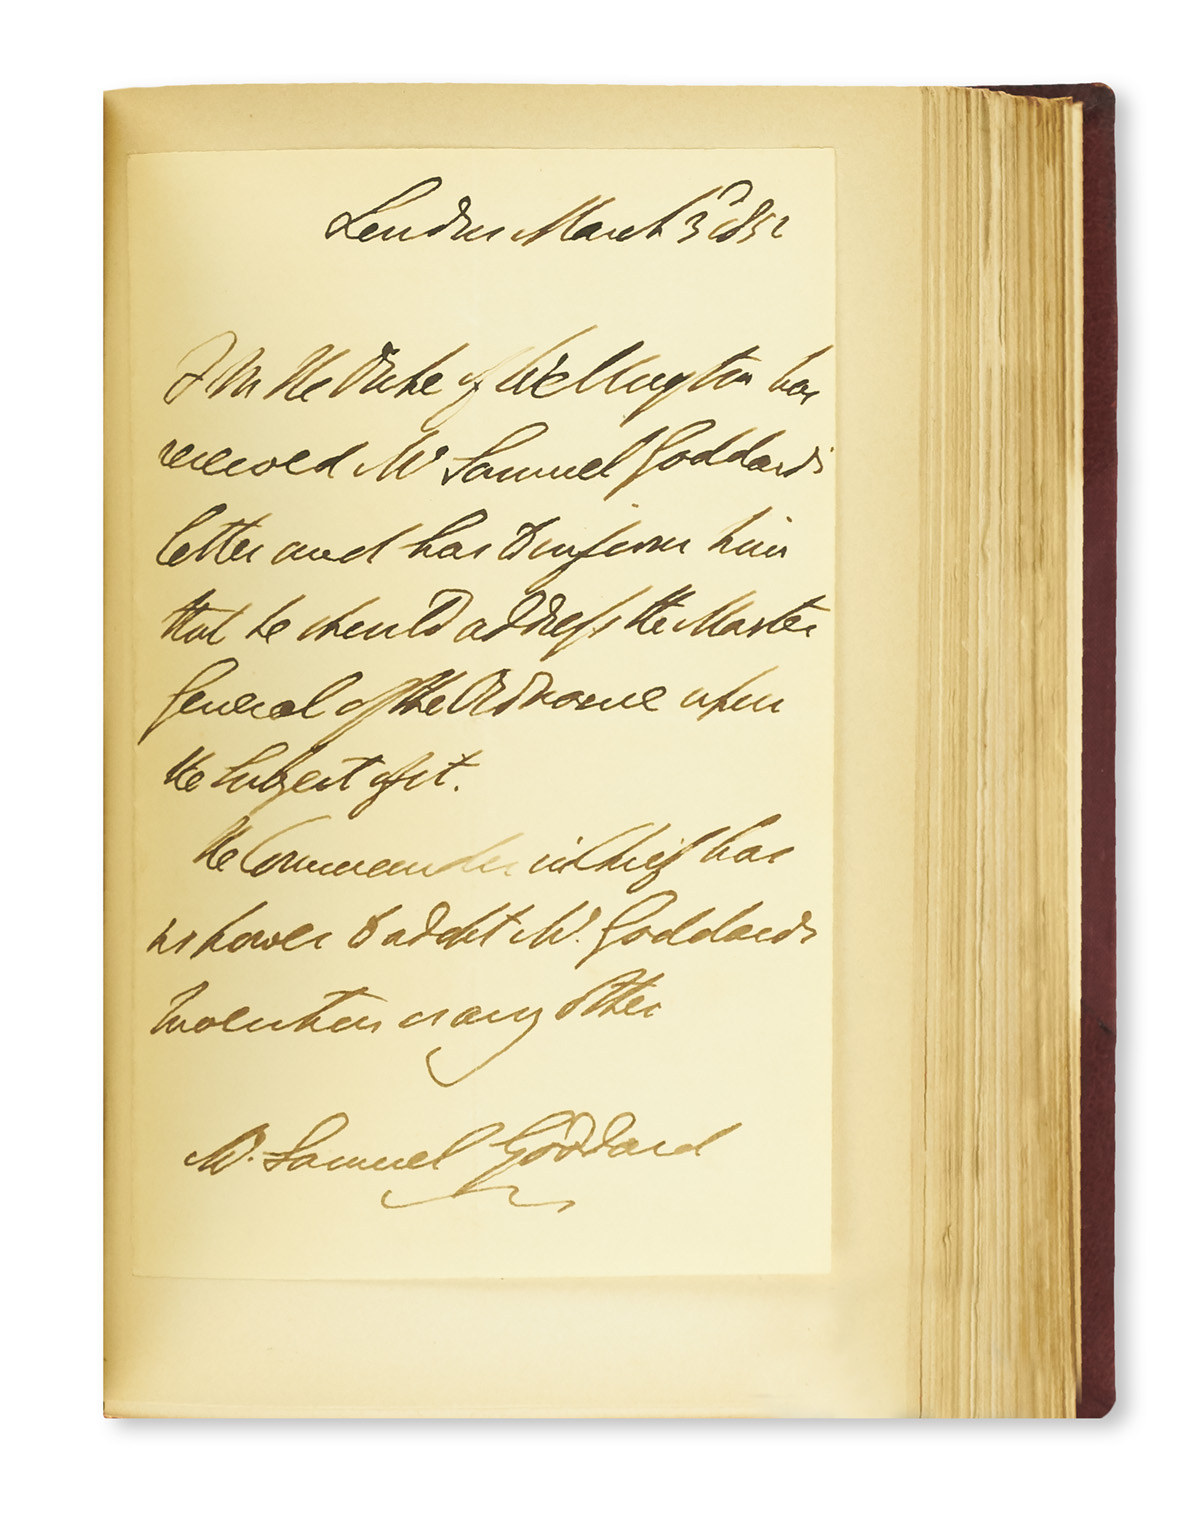 London March 3d 1852
F M the Duke of Wellington has
received Mr Samuel Goddard's
letter and has to inform him
that he should address the Master
General of the Ordnance upon
the subject of it.
The Commander in Chief has
no power to adopt Mr. Goddard's
Invention or any other
Mr. Samuel Goddard